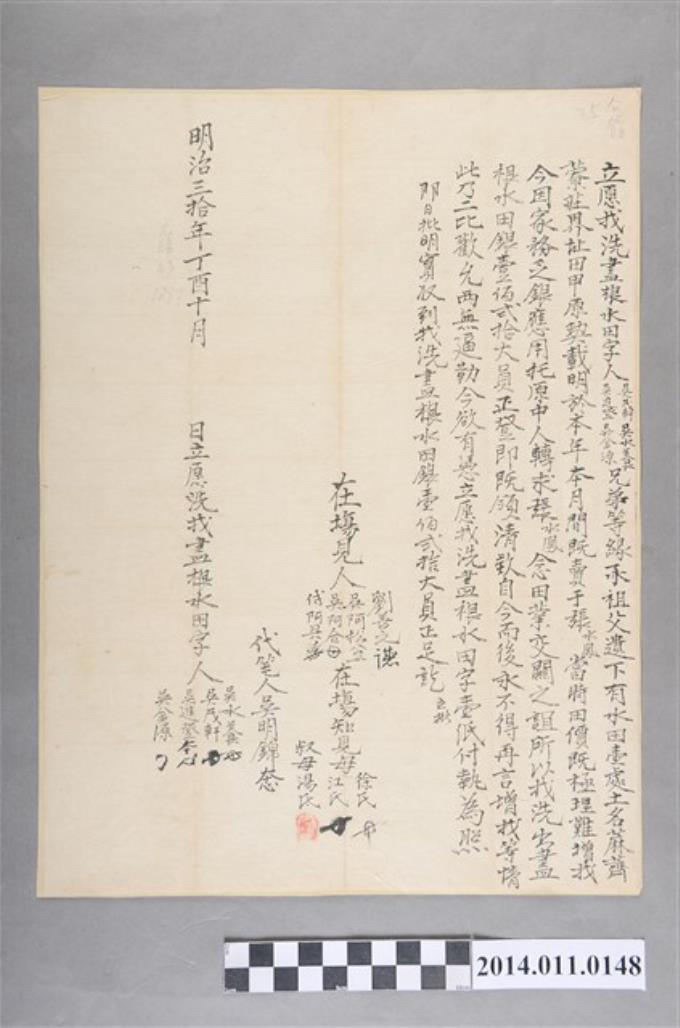 立愿找洗盡根水田字人吳茂軒吳水養吳進登吳金源兄弟等緣承祖父遺下有水田壹處土名蔴薺
藔坵界址田甲原契載明於本年本月間既賣于張水鳳當時田價既極理難增找
今因家務乏銀應用托原中人轉求張水鳳念田業交關之誼所以找洗出盡
根水田銀壹佰貳拾大員正登即既領清歡自今而後永不得再言增找等情
此乃二比歡允兩無逼勒今欲有憑立愿找洗盡根水田字壹紙付執為照
即日批明實收到找洗盡根水田銀壹佰貳拾大員正足訖
劉善之
在場見人吳阿松吳阿合
在場知見母徐氏江氏
叔母湯氏
代筆人吳明錦
明治三拾年丁酉十月 日立愿洗找盡根水田字人吳水養吳茂軒吳進登吳金源
2014.011.0148